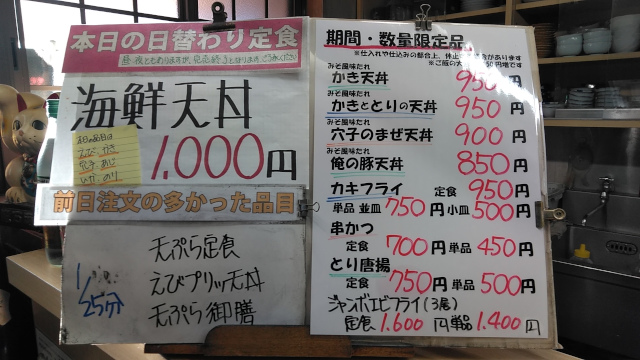 本日の日替わり定食
昼、夜ともありますが、完売続きとなります。ごりょうしょうください
海鮮天丼
本日の品目は
えび かき
穴子 あじ
いか のり
1,000円
前日注文の多かった品目
天ぷら定食
えびプリッ天丼
天ぷら御膳
1/
25分
期間・数量限定品
※仕入れや仕込みの都合上、休止
※ご飯の大
みそ風味だれ
かき天丼 950円
みそ風味だれ
かきととりの天丼 950円
みそ風味だれ
穴子のまぜ天丼 900円
みそ風味だれ
俺の豚天丼 850円
カキフライ 定食 950円
単品 並皿 750円 小皿 500円
串かつ
定食 700円 単品 450円
とり唐揚
定食 750円 単品 500円
ジャンボエビフライ(3尾)
定食 1.600円 単品 1.400円